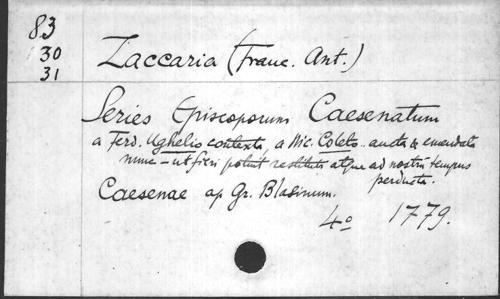 83
30
31
Zaccaria (Franc. Ant.)
Series Episcoporum Caesenatum
a Ferd. Ughelio contexta, a Nic. Coleto aucta & emendata
nunc - ut fieri potuit restituta atque ad nostrū tempus
perducta.
Caesenae ap Gr. Blasinum.
4o 1779.